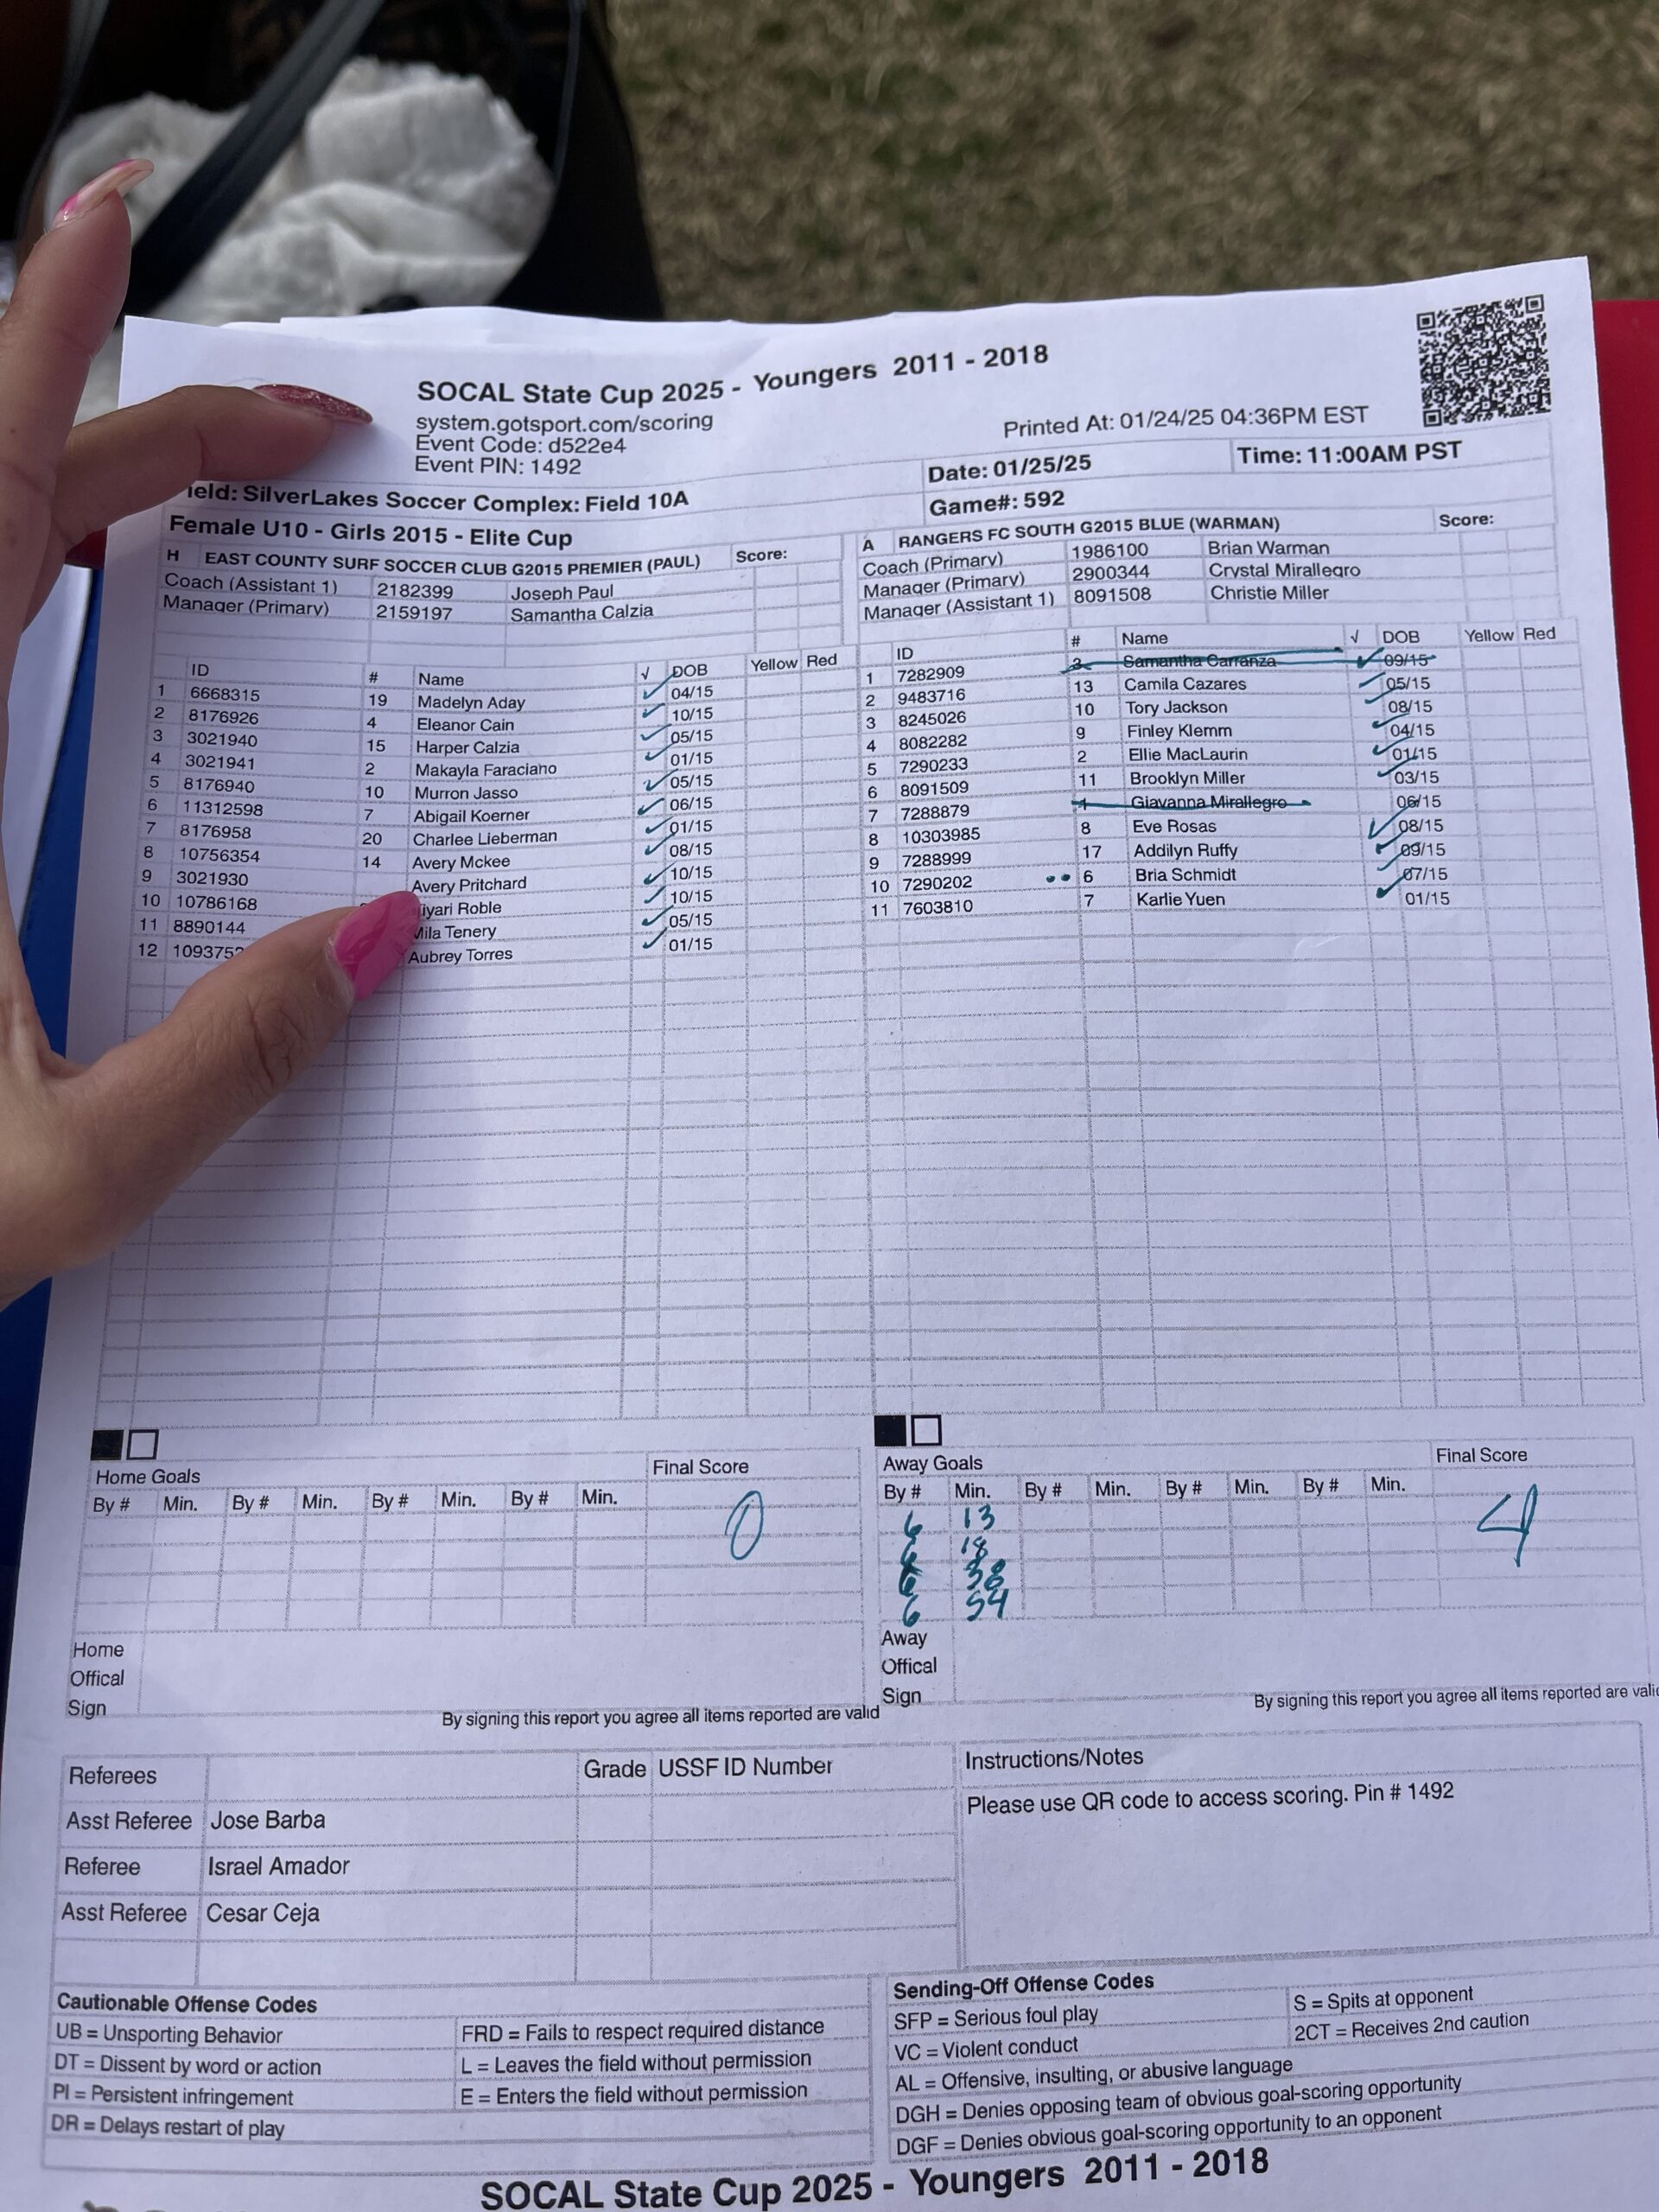 SOCAL State Cup 2025 - Youngers 2011 - 2018
system.gotsport.com/scoring
Event Code: d522e4
Event PIN: 1492
Printed At: 01/24/25 04:36PM EST
Date: 01/25/25 Time: 11:00AM PST
ield: SilverLakes Soccer Complex: Field 10A
Game#: 592
Female U10 - Girls 2015 - Elite Cup
H EAST COUNTY SURF SOCCER CLUB G2015 PREMIER (PAUL) Score:
Coach (Assistant 1) 2182399 Joseph Paul
Manager (Primary) 2159197 Samantha Calzia
ID # Name √ DOB Yellow Red
1 6668315 19 Madelyn Aday ✓ 04/15
2 8176926 4 Eleanor Cain ✓ 10/15
3 3021940 15 Harper Calzia ✓ 05/15
4 3021941 2 Makayla Faraciano ✓ 01/15
5 8176940 10 Murron Jasso ✓ 05/15
6 11312598 7 Abigail Koerner ✓ 06/15
7 8176958 20 Charlee Lieberman ✓ 01/15
8 10756354 14 Avery Mckee ✓ 08/15
9 3021930 Avery Pritchard ✓ 10/15
10 10786168 iyari Roble ✓ 10/15
11 8890144 Mila Tenery ✓ 05/15
12 1093752 Aubrey Torres ✓ 01/15
A RANGERS FC SOUTH G2015 BLUE (WARMAN) Score:
Coach (Primary) 1986100 Brian Warman
Manager (Primary) 2900344 Crystal Mirallegro
Manager (Assistant 1) 8091508 Christie Miller
ID # Name √ DOB Yellow Red
1 7282909 3 Samantha Carranza ✓ 09/15
2 9483716 13 Camila Cazares ✓ 05/15
3 8245026 10 Tory Jackson ✓ 08/15
4 8082282 9 Finley Klemm ✓ 04/15
5 7290233 2 Ellie MacLaurin ✓ 01/15
6 8091509 11 Brooklyn Miller ✓ 03/15
7 7288879 1 Giavanna Mirallegro 06/15
8 10303985 8 Eve Rosas ✓ 08/15
9 7288999 17 Addilyn Ruffy ✓ 09/15
10 7290202 6 Bria Schmidt ✓ 07/15
11 7603810 7 Karlie Yuen ✓ 01/15
Home Goals Final Score
By # Min. By # Min. By # Min. By # Min.
0
Away Goals Final Score
By # Min. By # Min. By # Min. By # Min.
6 13
4
6 18
6 38
6 54
Home
Offical
Sign
By signing this report you agree all items reported are valid
Away
Offical
Sign
By signing this report you agree all items reported are valid
Referees Grade USSF ID Number
Asst Referee Jose Barba
Referee Israel Amador
Asst Referee Cesar Ceja
Instructions/Notes
Please use QR code to access scoring. Pin # 1492
Cautionable Offense Codes
UB = Unsporting Behavior FRD = Fails to respect required distance
DT = Dissent by word or action L = Leaves the field without permission
PI = Persistent infringement E = Enters the field without permission
DR = Delays restart of play
Sending-Off Offense Codes
SFP = Serious foul play S = Spits at opponent
VC = Violent conduct 2CT = Receives 2nd caution
AL = Offensive, insulting, or abusive language
DGH = Denies opposing team of obvious goal-scoring opportunity
DGF = Denies obvious goal-scoring opportunity to an opponent
SOCAL State Cup 2025 - Youngers 2011 - 2018